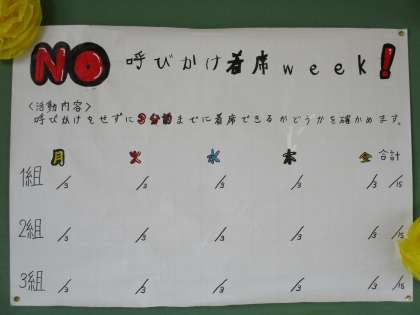 NO 呼びかけ着席week!
〈活動内容〉
呼びかけをせずに3分前までに着席できるかどうかを確かめます。
月 火 水 木 金 合計
1組 /3 /3 /3 /3 /3 /15
2組 /3 /3 /3 /3 /3 /15
3組 /3 /3 /3 /3 /3 /15